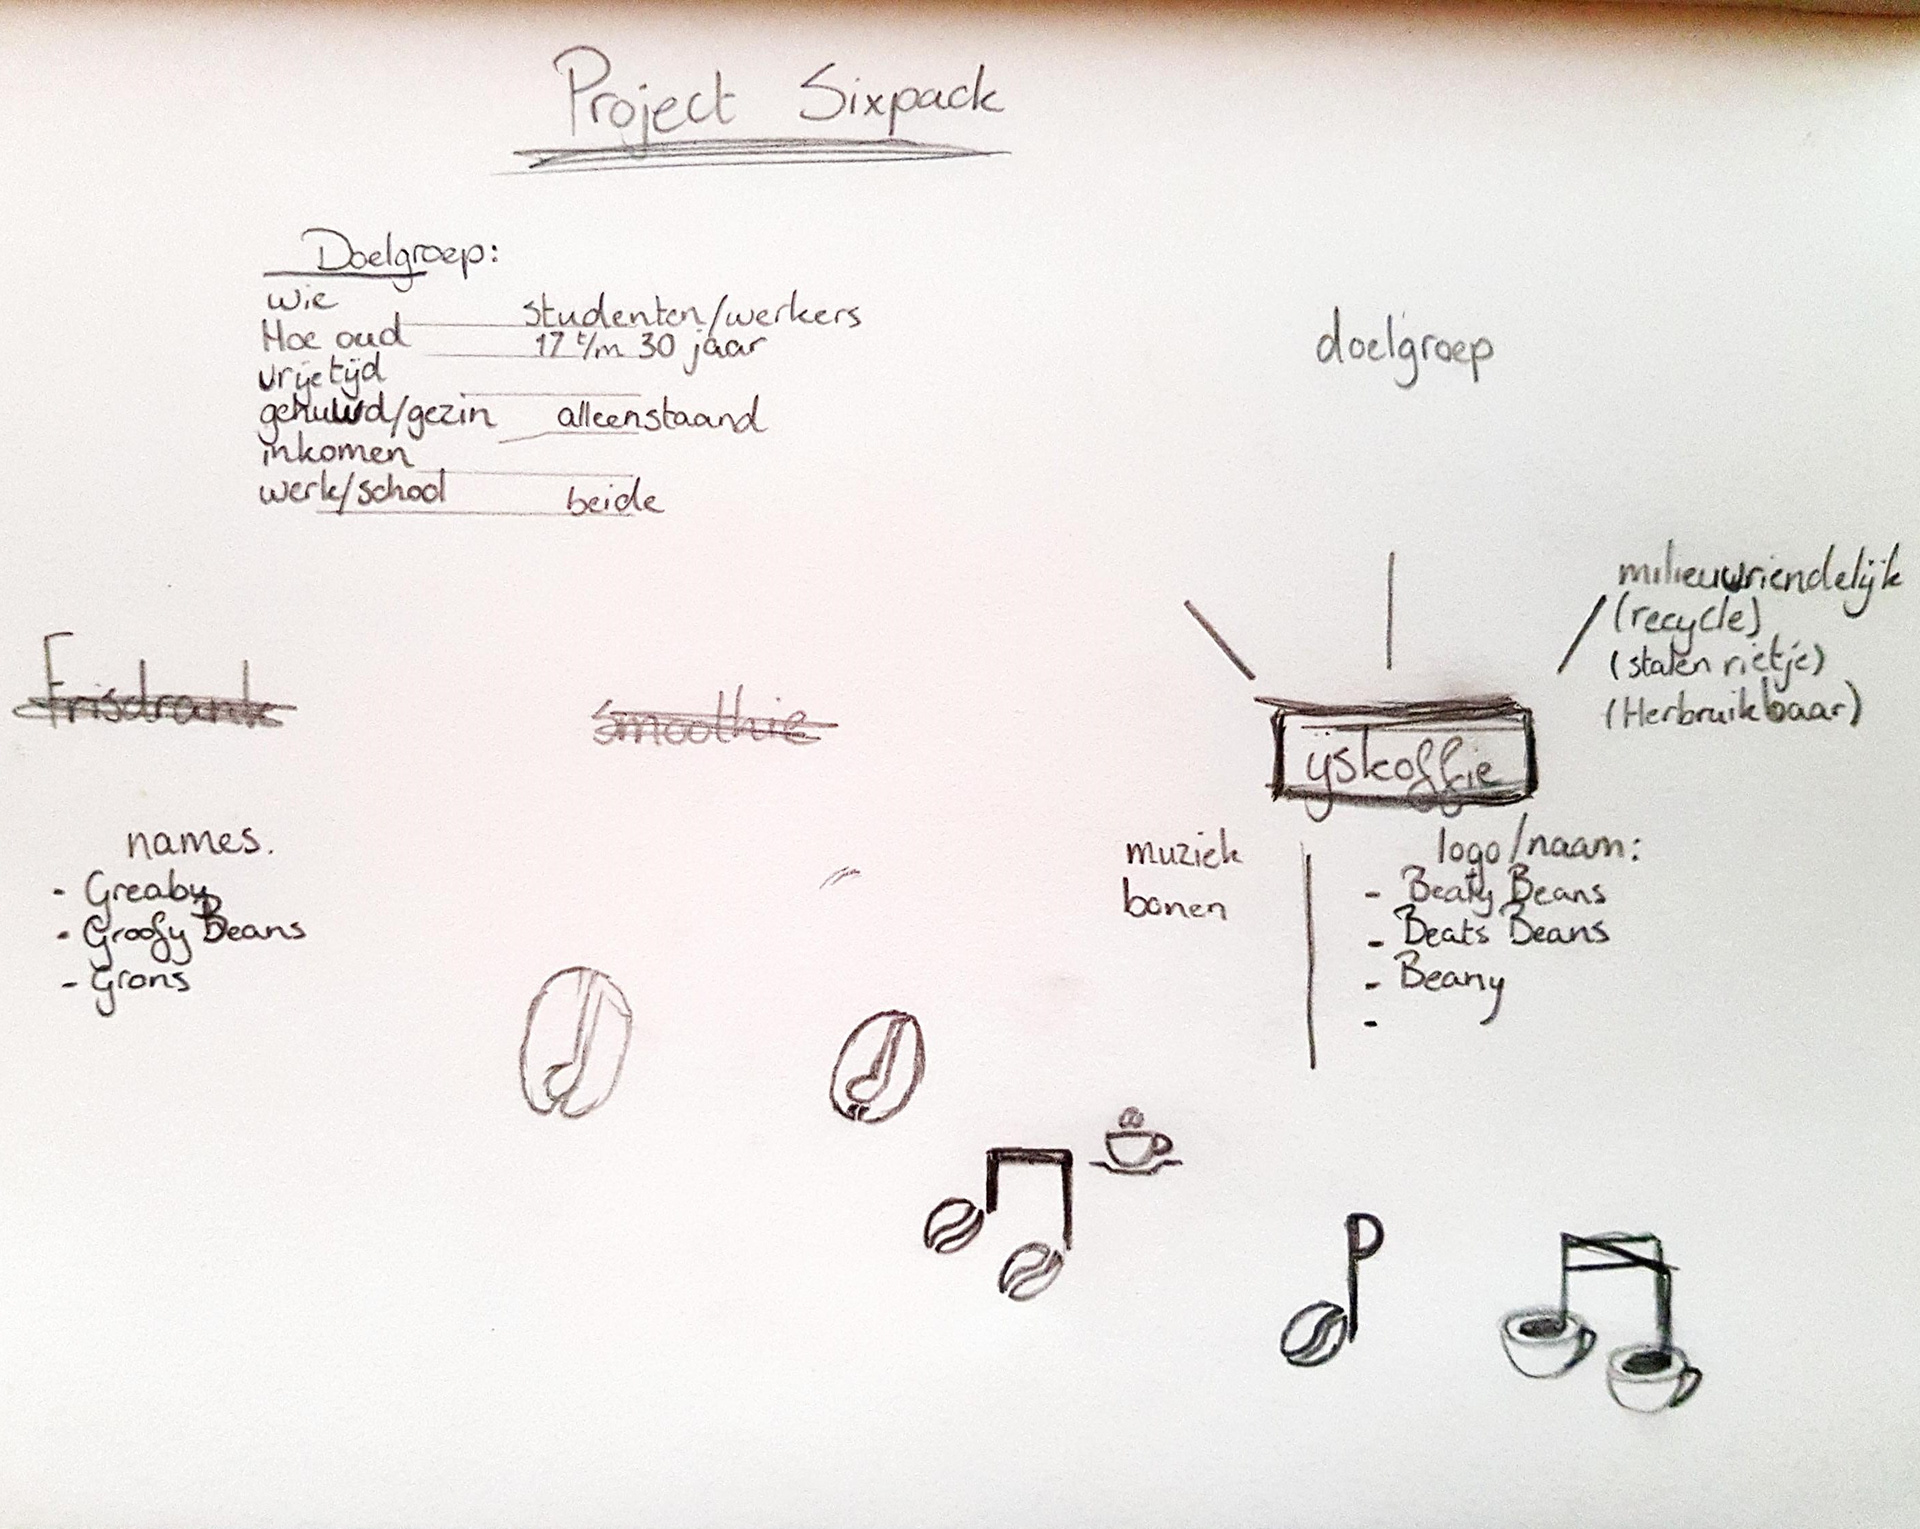 Project Sixpack
Doelgroep:
wie studenten/werkers
Hoe oud 17 t/m 30 jaar
vrije tijd
gehuwd/gezin alleenstaand
inkomen
werk/school beide
doelgroep
milieuvriendelijk
(recycle)
(stalen rietje)
(Herbruikbaar)
Frisdrank
smoothie
ijskoffie
names.
- Greaby
- Groofy Beans
- Grons
muziek
bonen
logo/naam:
- Beaty Beans
- Beats Beans
- Beany
-